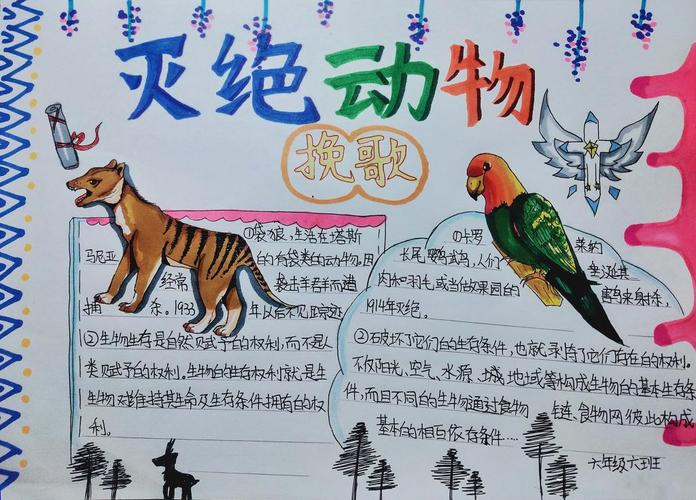 灭绝动物
挽歌
①袋狼,生活在塔斯
马尼亚 的有袋类的动物.因
经常 袭击羊群而遭
捕 杀.1933 年以后不见踪迹
②生物生存是自然赋予的权利,而不是人
类赋予的权利。生物的生存权利就是生
生物对维持其生命及生存条件拥有的权
利。
①卡罗 莱纳
长尾鹦鹉,人们 垂涎其
肉和羽毛或当做果园的 害鸟来射杀,
1914年灭绝。
②破坏了它们的生存条件,也就剥夺了它们存在的权利。
不仅阳光、空气、水源、土域、地域等构成生物的基本生存条
件,而且不同的生物通过食物 链、食物网彼此构成
基本的相互依存条件....
六年级六班